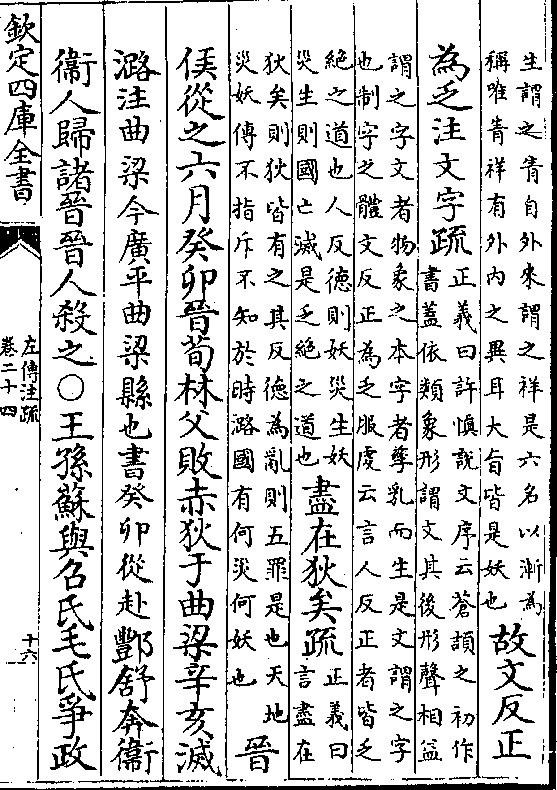 生謂之眚自外來謂之祥是六名以漸為
稱唯眚祥有外内之異耳大㫖皆是妖也
故文反正
為乏注文字疏
正義曰許慎説文序云蒼頡之初作
書蓋依類象形謂文其後形聲相益
謂之字文者物象之本字者孳乳而生是文謂之字
也制字之體文反正為乏服虔云言人反正者皆乏
絶之道也人反德則妖災生妖
災生則國亡滅是乏絶之道也
盡在狄矣疏
正義曰
言盡在
狄矣則狄皆有之其反德為亂則五罪是也天地
災妖傳不指斥不知於時潞國有何災何妖也
晉
侯從之六月癸卯晉荀林父敗赤狄于曲梁辛亥滅
潞注曲梁今廣平曲梁縣也書癸卯從赴酆舒奔衞
衞人歸諸晉晉人殺之○王孫蘇與召氏毛氏爭政
欽定四庫全書
左傳注疏
卷二十四
十六